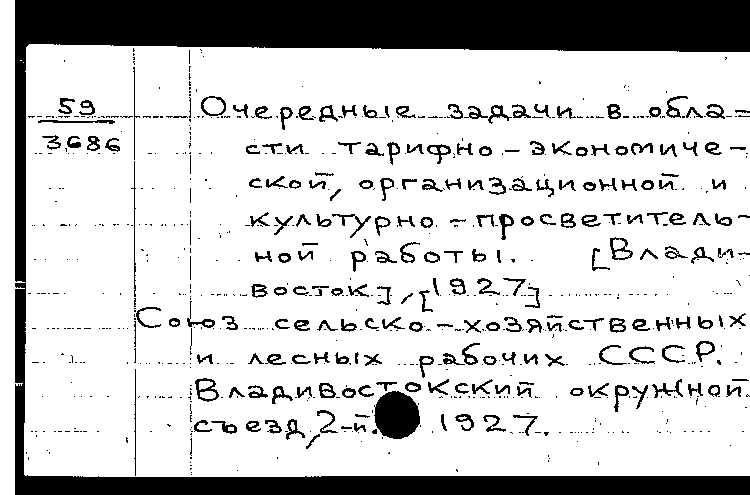 59
3686
Очередные задачи в обла=
сти тарифно-экономиче-
ской, организационной и
культурно-просветитель-
ной работы. [Влади-
восток], [1927]
Союз сельско-хозяйственных
и лесных рабочих СССР.
Владивостокский окружной
съезд, 2-й. 1927.